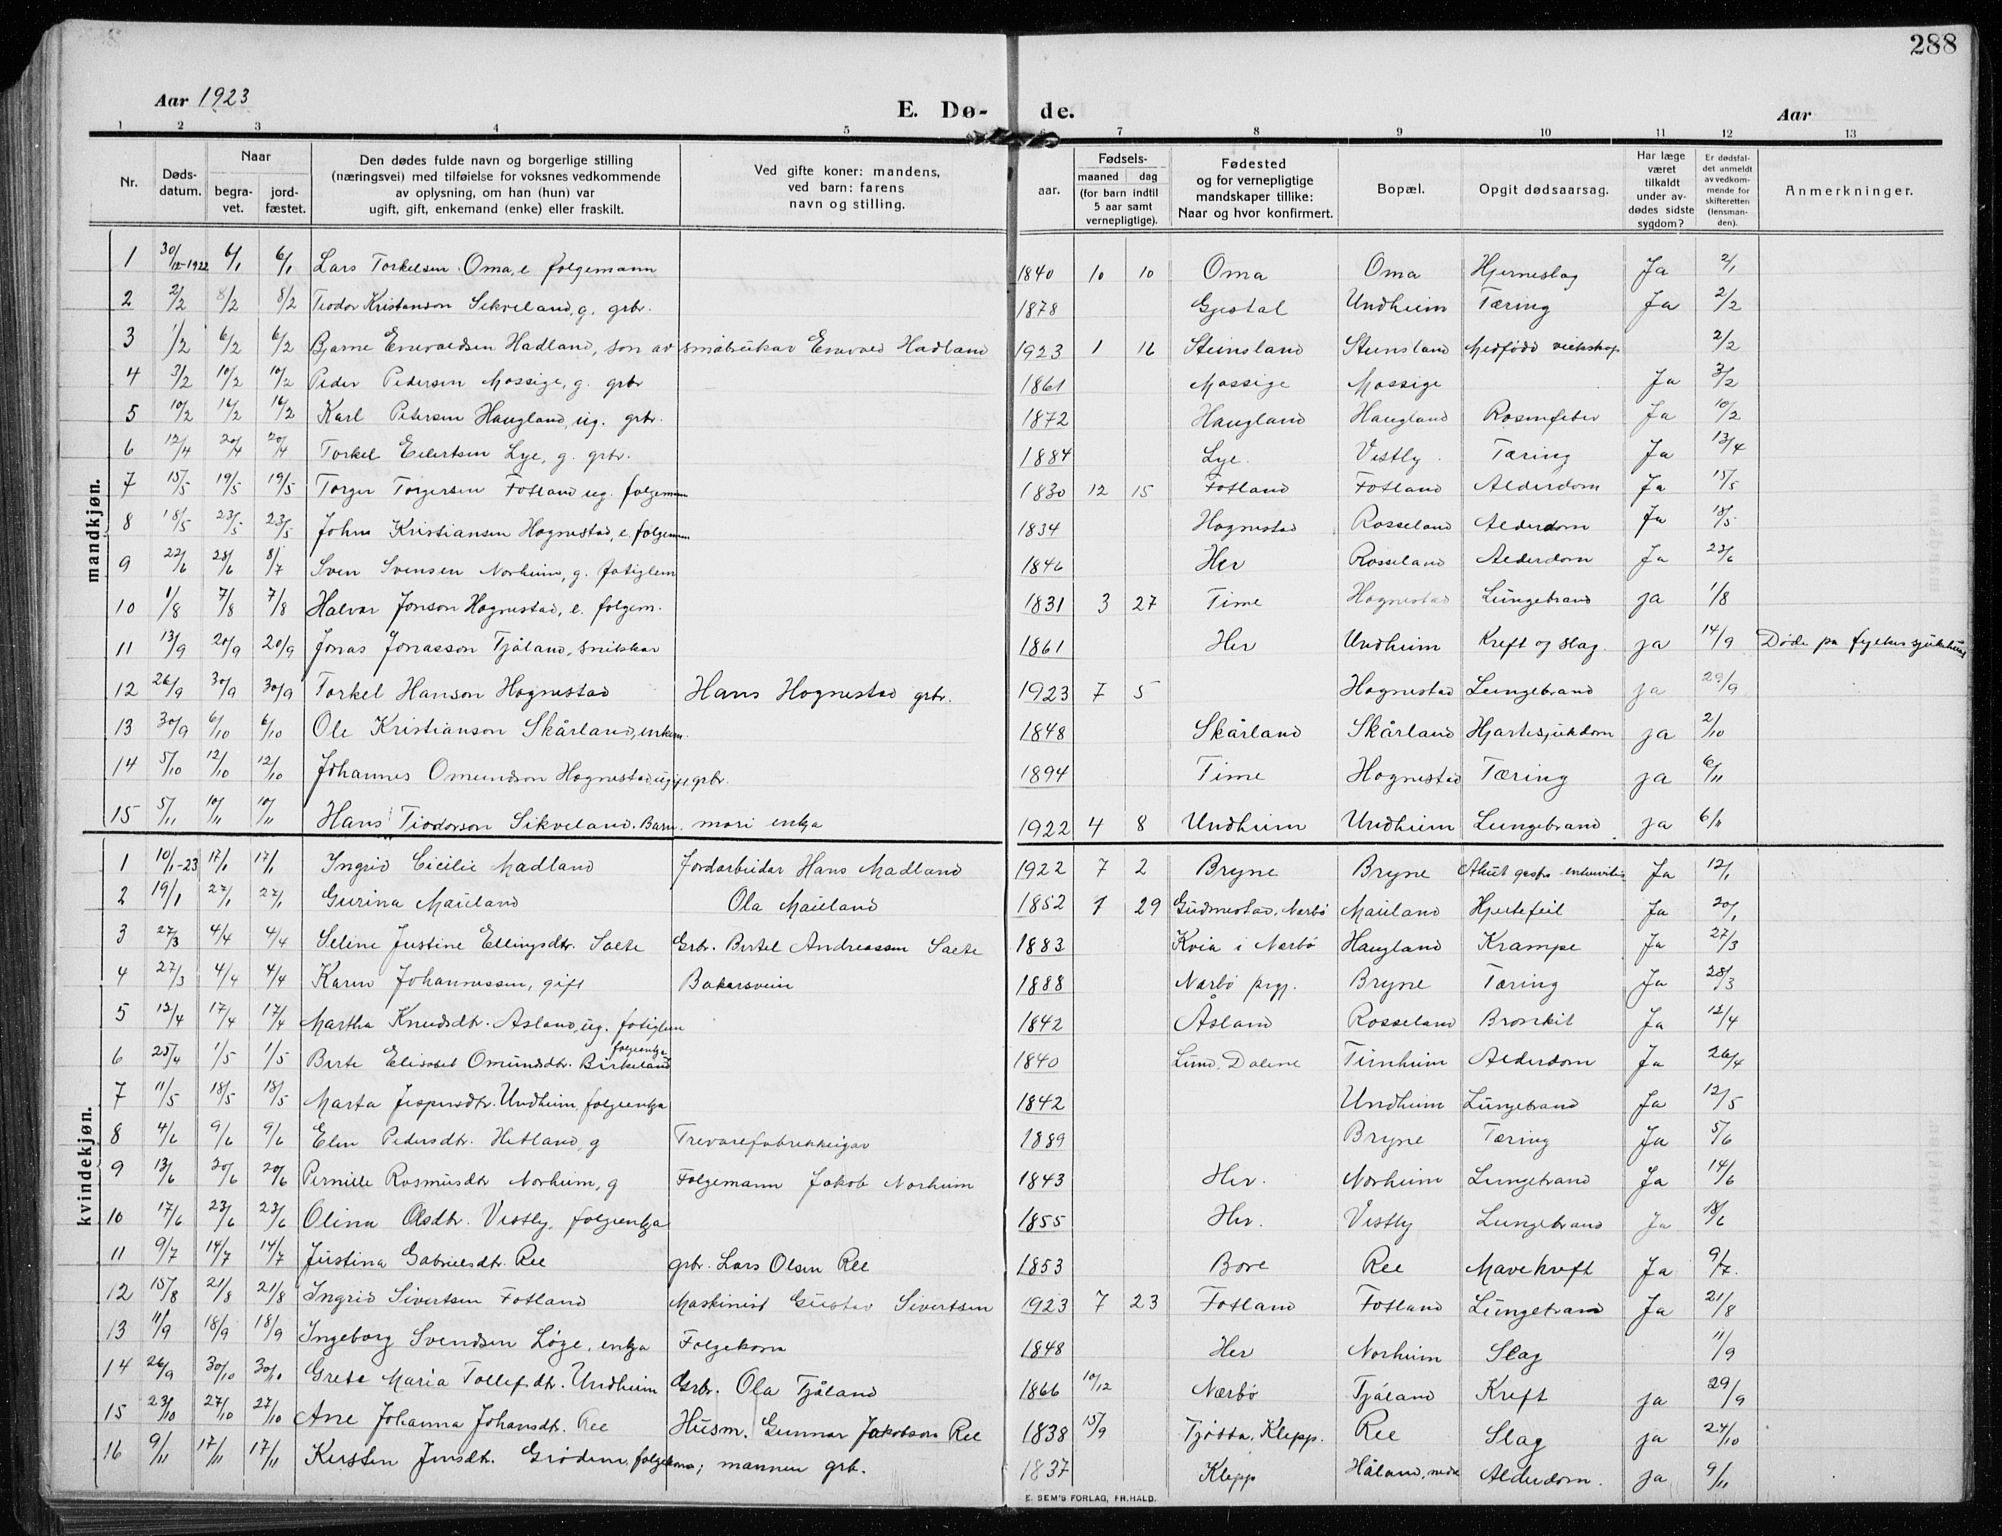 288
Aar 1923
E. Dø-
de.
Aar
1 2 3 4 5 6 7 8 9 10 11 12 13
Nr.
Døds-
datum.
Naar
begra-
vet.
jord-
fæstet.
Den dødes fulde navn og borgerlige stilling
(næringsvei) med tilføielse for voksnes vedkommende
av oplysning, om han (hun) var
ugift, gift, enkemand (enke) eller fraskilt.
Ved gifte koner: mandens,
ved barn: farens
navn og stilling.
aar.
Fødsels-
maaned dag
(for barn indtil
5 aar samt
vernepligtige).
Fødested
og for vernepligtige
mandskaper tillike:
Naar og hvor konfirmert.
Bopæl.
Opgit dødsaarsag.
Har læge
været
tilkaldt
under av-
dødes sidste
sygdom?
Er dødsfal-
det anmeldt
av vedkom-
mende for
skifteretten
(lensman-
den).
Anmerkninger.
mandkjøn.
1 30/12-1922 6/1 6/1 Lars Torkelsen Oma, e folgemann 1840 10 10 Oma Oma Hjerneslag Ja 2/1
2 2/2 8/2 8/2 Teodor Kristenson Sikveland, g. grbr. 1878 Gjestal Undheim Tæring Ja 2/2
3 1/2 6/2 6/2 Bjarne Enevaldsen Hadland, son av småbrukar Enevald Hadland 1923 1 16 Steinsland Steinsland Medfødd veikskap 2/2
4 3/2 10/2 10/2 Peder Pedersen Mossige, g. grbr 1861 Mossige Mossige Ja 3/2
5 10/2 16/2 16/2 Karl Petersen Haugland, ug. grbr. 1872 Haugland Haugland Rosenfeber Ja 10/2
6 12/4 20/4 20/4 Torkel Eilertsen Lye, g. grbr. 1884 Lye. Vestly. Tæring Ja 13/4
7 15/5 19/5 19/5 Torger Torgersen Fotland ug. folgemann 1830 12 15 Fotland Fotland Alderdom Ja 15/5
8 18/5 23/5 23/5 John Kristiansen Hognestad, e. folgemann 1834 Hognestad Rosseland Alderdom Ja 18/5
9 22/6 28/6 8/7 Sven Svensen Norheim, g. fatiglem 1846 Her Rosseland Alderdom Ja 23/6
10 1/8 7/8 7/8 Halvar Jonson Hognestad, e. folgem. 1831 3 27 Time Hognestad Lungebrand ja 1/8
11 13/9 20/9 20/9 Jonas Jonasson Tjåland, snikkar 1861 Her Undheim Kreft og slag. ja 14/9 Døde på fylkessjukehuset
12 26/9 30/9 30/9 Torkel Hanson Hognestad Hans Hognestad grbr. 1923 7 5 Hognestad Lungebrand ja 29/9
13 30/9 6/10 6/10 Ole Kristianson Skårland, enkem. 1848 Skårland Skårland Hjartesjukdom ja 2/10
14 5/10 12/10 12/10 Johannes Omundson Hognestad, ugift, grbr. 1894 Time Hognestad Tæring ja 6/11
15 5/11 10/11 10/11 Hans Tiodorson Sikveland. Barn. mori enkja 1922 4 8 Undheim Undheim Lungebrand ja 6/11
kvindekjøn.
1 10/1-23 17/1 17/1 Ingrid Cicilie Madland Jordarbeidar Hans Madland 1922 7 2 Bryne Bryne Akut gastro-enteritis Ja 12/1
2 19/1 27/1 27/1 Gurina Mauland Ola Mauland 1852 7 29 Gudmestad, Nærbø Mauland Hjertefeil Ja 20/1
3 27/3 4/4 4/4 Seline Justine Ellingsdtr. Sæte Grbr. Bertel Andreassen Sæte 1883 Kvia i Nærbø Haugland Krampe Ja 27/3
4 27/3 4/4 4/4 Karen Johannessen, gift Bakarsvein 1888 Nærbø prgj. Bryne Tæring Ja 28/3
5 12/4 17/4 17/4 Martha Knudsdtr. Åsland, ug. fatiglem 1842 Åsland Rosseland Bronkit Ja 12/4
6 25/4 1/5 1/5 Berte Elisabet Omundsdtr. Birkeland folgeenkja 1840 Lund, Dalene Tirnheim Alderdom Ja 26/4
7 11/5 18/5 18/5 Marta Jespersdtr. Undheim, folgeenkja 1842 Undheim Lungebrand Ja 12/5
8 4/6 9/6 9/6 Elen Pedersdtr. Hetland, g Trevarefabrikkeigar 1889 Bryne Tæring Ja 5/6
9 13/6 20/6 20/6 Pernille Rasmusdtr Norheim, g Folgemann Jakob Norheim 1843 Her. Norheim Lungebrand Ja 14/6
10 17/6 23/6 23/6 Olina Olsdtr. Vestly, folgeenkja 1855 Her. Vestly Lungebrand Ja 18/6
11 9/7 14/7 14/7 Justina Gabrielsdtr. Ree grbr. Lars Olsen Ree 1853 Bore Ree Mavekreft Ja 9/7.
12 15/8 21/8 21/8 Ingrid Sivertsen Fotland Maskinist Gustav Sivertsen 1923 7 23 Fotland Fotland Lungebrand Ja 21/8
13 11/9 18/9 18/9 Ingeborg Svendsen Løge, enkja Folgekona 1848 Her Norheim Slag 11/9
14 26/9 30/10 30/10 Grete Maria Tollefsdtr. Undheim Grbr. Ola Tjåland 1866 10/12 Nærbø Tjåland Kreft ja 29/9
15 23/10 27/10 27/10 Ane Johanna Johansdtr. Ree Husm. Gunnar Jakobson Ree 1838 15/9 Tjøtta, Klepp. Ree Slag ja 24/10
16 9/11 17/11 17/11 Kirsten Jensdt. Grødem, folgekona; mannen grb. 1837 Klepp Håland, nedre Alderdom. ja 9/11
E. SEM'S FORLAG, FR.HALD.